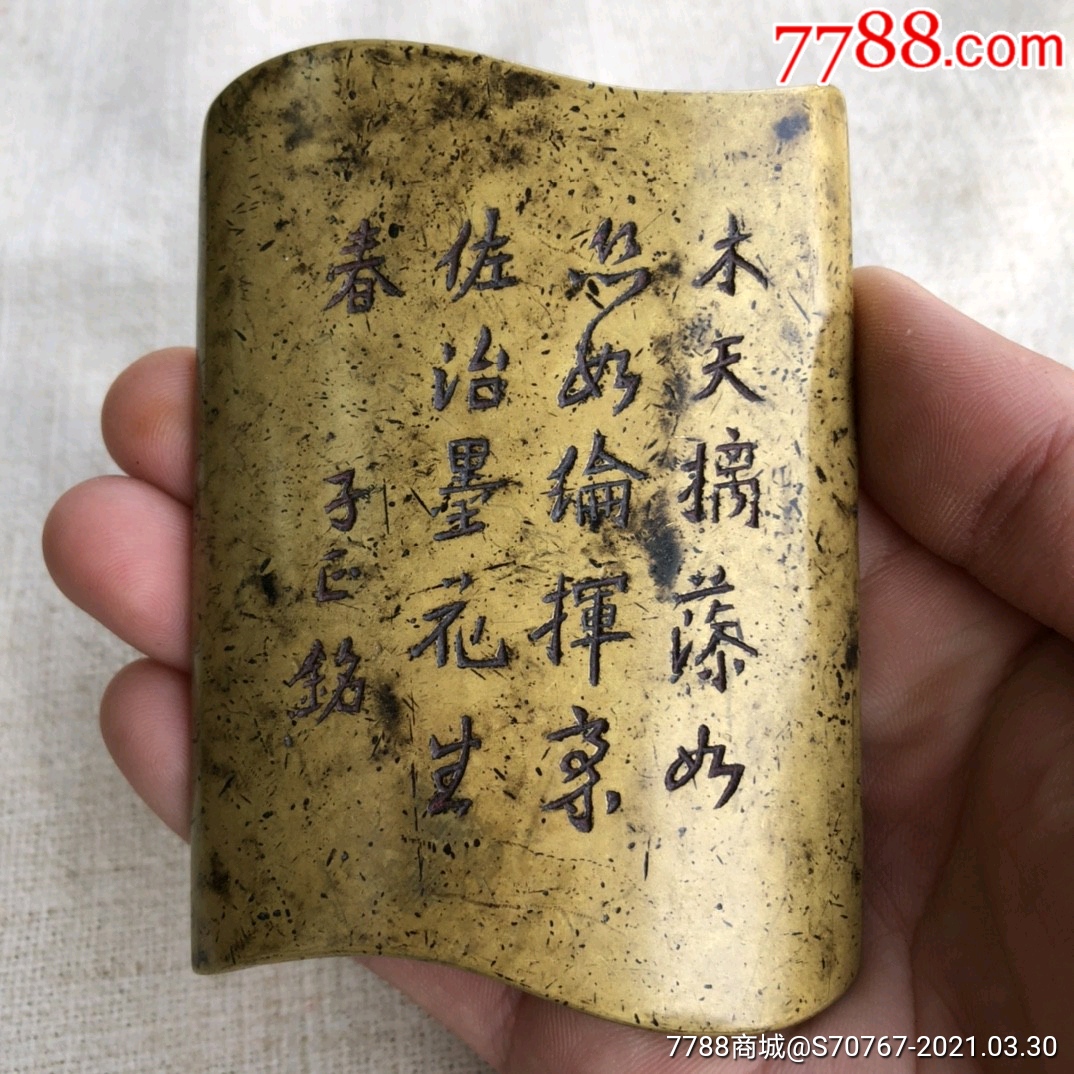 7788.com
木天摛藻如
絲如綸揮案
佐治墨花生
春 子正銘
7788商城@S70767-2021.03.30